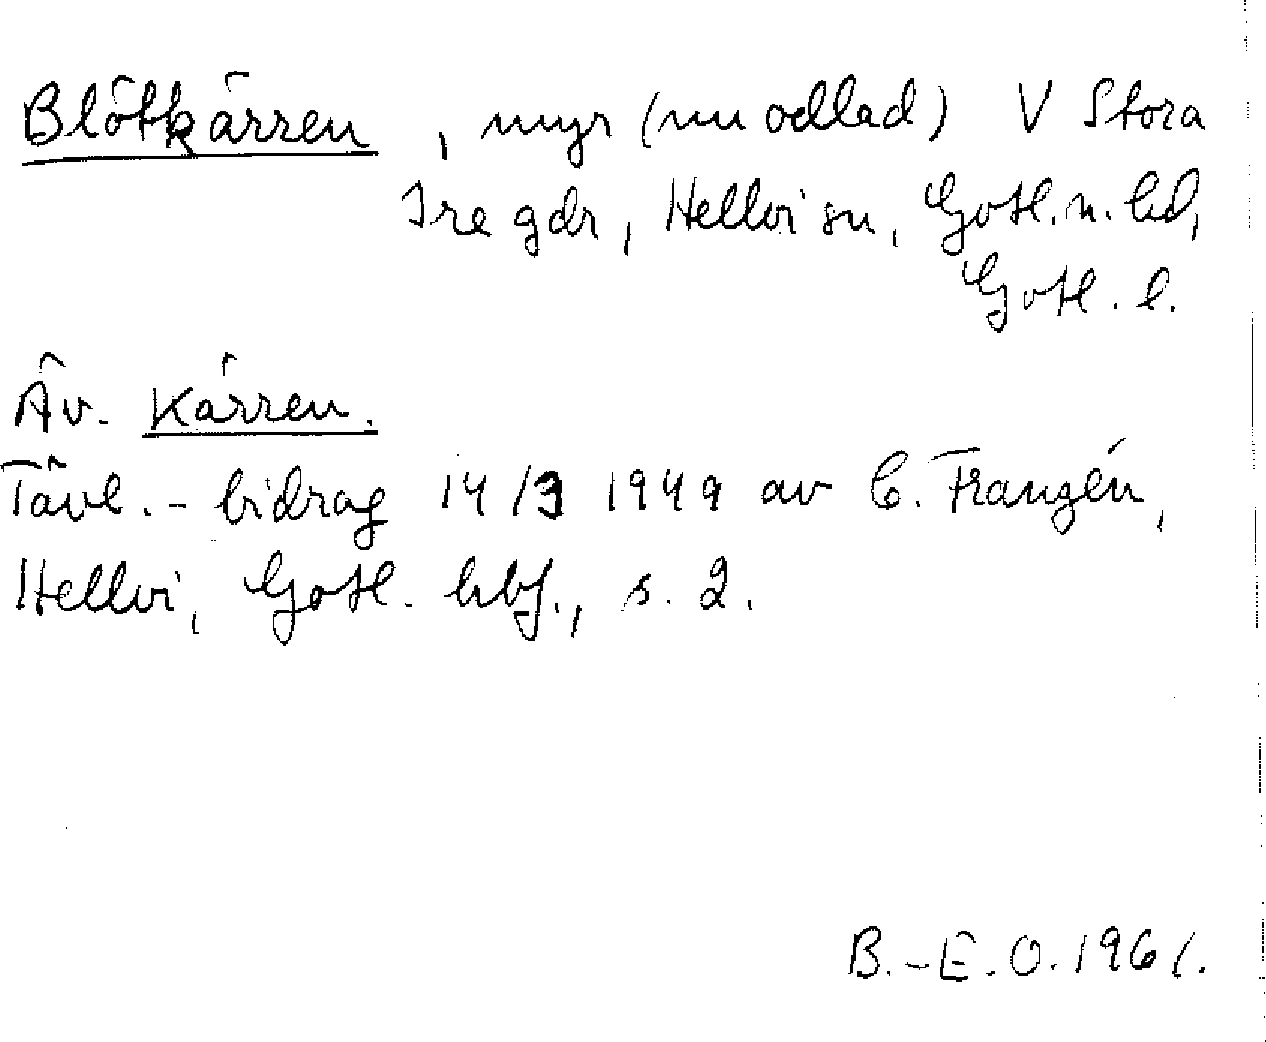 Blötkärren, myr (nu odlad) V Stora
Ire gdr, Hellvi sn, Gotl. n. hd,
Gotl. l.
Äv. Kärren.
Tävl.-bidrag 14/3 1949 av C. Franzén,
Hellvi, Gotl. hbf., s. 2.
B.-E. O. 1961.